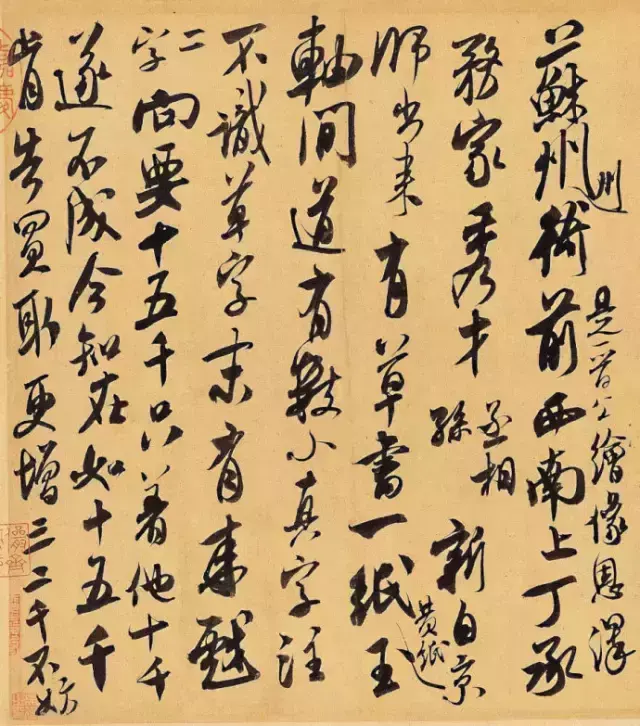 一蘇州衙前西南上丁承
州
是晋公繪像恩澤
務家秀才丞相孫新自京
師出来有草書一紙王
黄紙
軸間道有數小真字注
不識草字末有来戲
二字向要十五千只着他十千
遂不成今知在如十五千
肯告買取更增三二千不妨